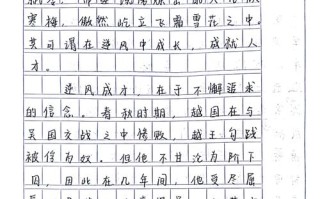 寒梅,傲然屹立飞霜雪花之中。
其可谓在逆风中成长,成就人
才。
逆风成才,在于不懈追求
的信念。春秋时期,越国在与
吴国交战之中惨败,越王句践
被俘为奴。但他不甘沦为阶下
囚,因此在几年间,他受尽屈